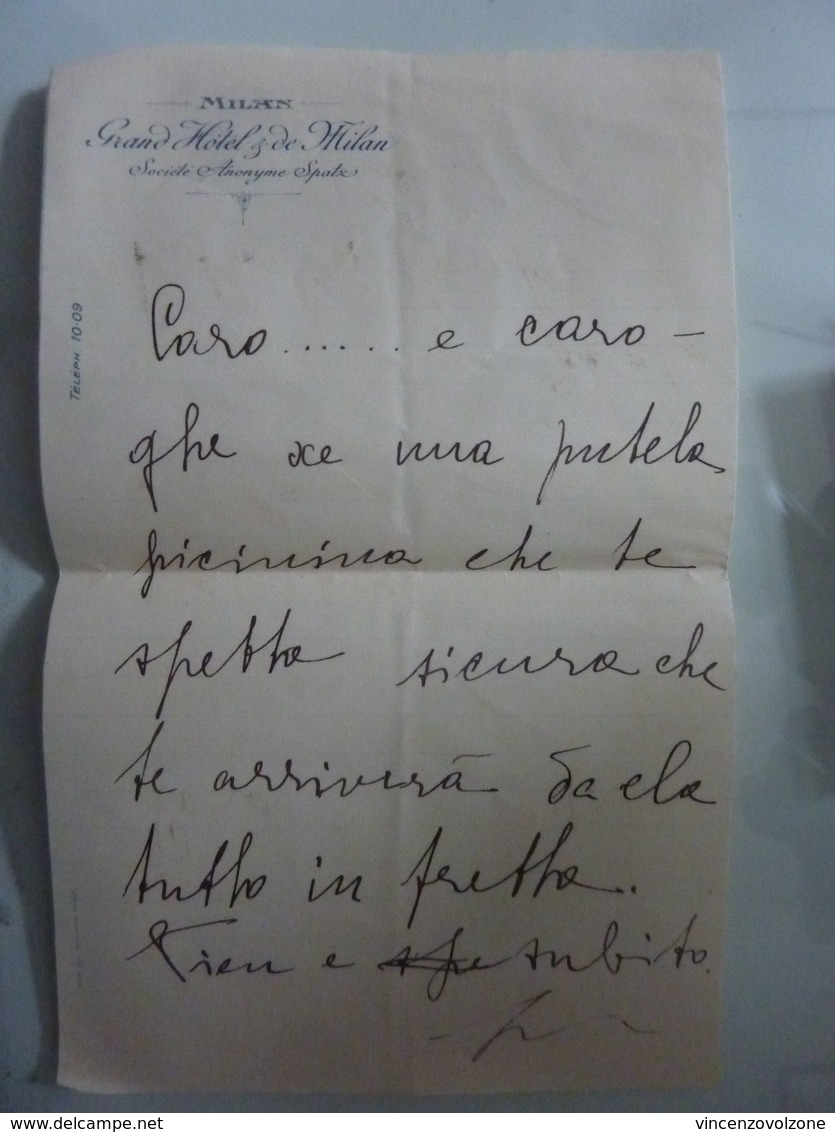 MILAN
Grand Hôtel & de Milan
Société Anonyme Spatz
TÉLÉPH. 10-09
Caro...... e caro -
ghe xe una putela
picinina che te
spetta sicura che
te arriverà da ela
tutto in fretta.
Vien e subito.
delcampe.net
vincenzovolzone